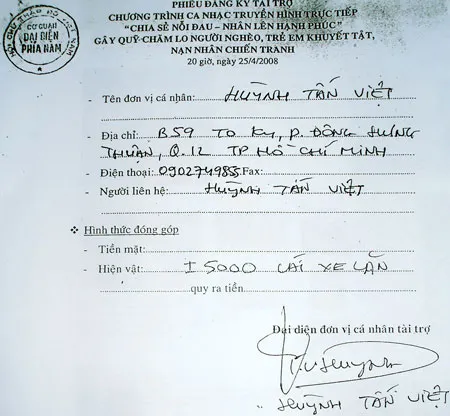 PHIẾU ĐĂNG KÝ TÀI TRỢ
CHƯƠNG TRÌNH CA NHẠC TRUYỀN HÌNH TRỰC TIẾP
"CHIA SẺ NỖI ĐAU – NHÂN LÊN HẠNH PHÚC"
GÂY QUỸ CHĂM LO NGƯỜI NGHÈO, TRẺ EM KHUYẾT TẬT,
NẠN NHÂN CHIẾN TRANH
20 giờ, ngày 25/4/2008
CƠ QUAN
ĐẠI DIỆN
PHÍA NAM
- Tên đơn vị cá nhân: HUỲNH TẤN VIỆT
- Địa chỉ: B59 TO KY, P. ĐÔNG HƯNG
THUẬN, Q.12 TP HỒ CHÍ MINH
- Điện thoại: 090274985 Fax:
- Người liên hệ: HUỲNH TẤN VIỆT
❖ Hình thức đóng góp
- Tiền mặt:
- Hiện vật: I 5000 CÁI XE LĂN
quy ra tiền
Đại diện đơn vị cá nhân tài trợ
HUỲNH TẤN VIỆT